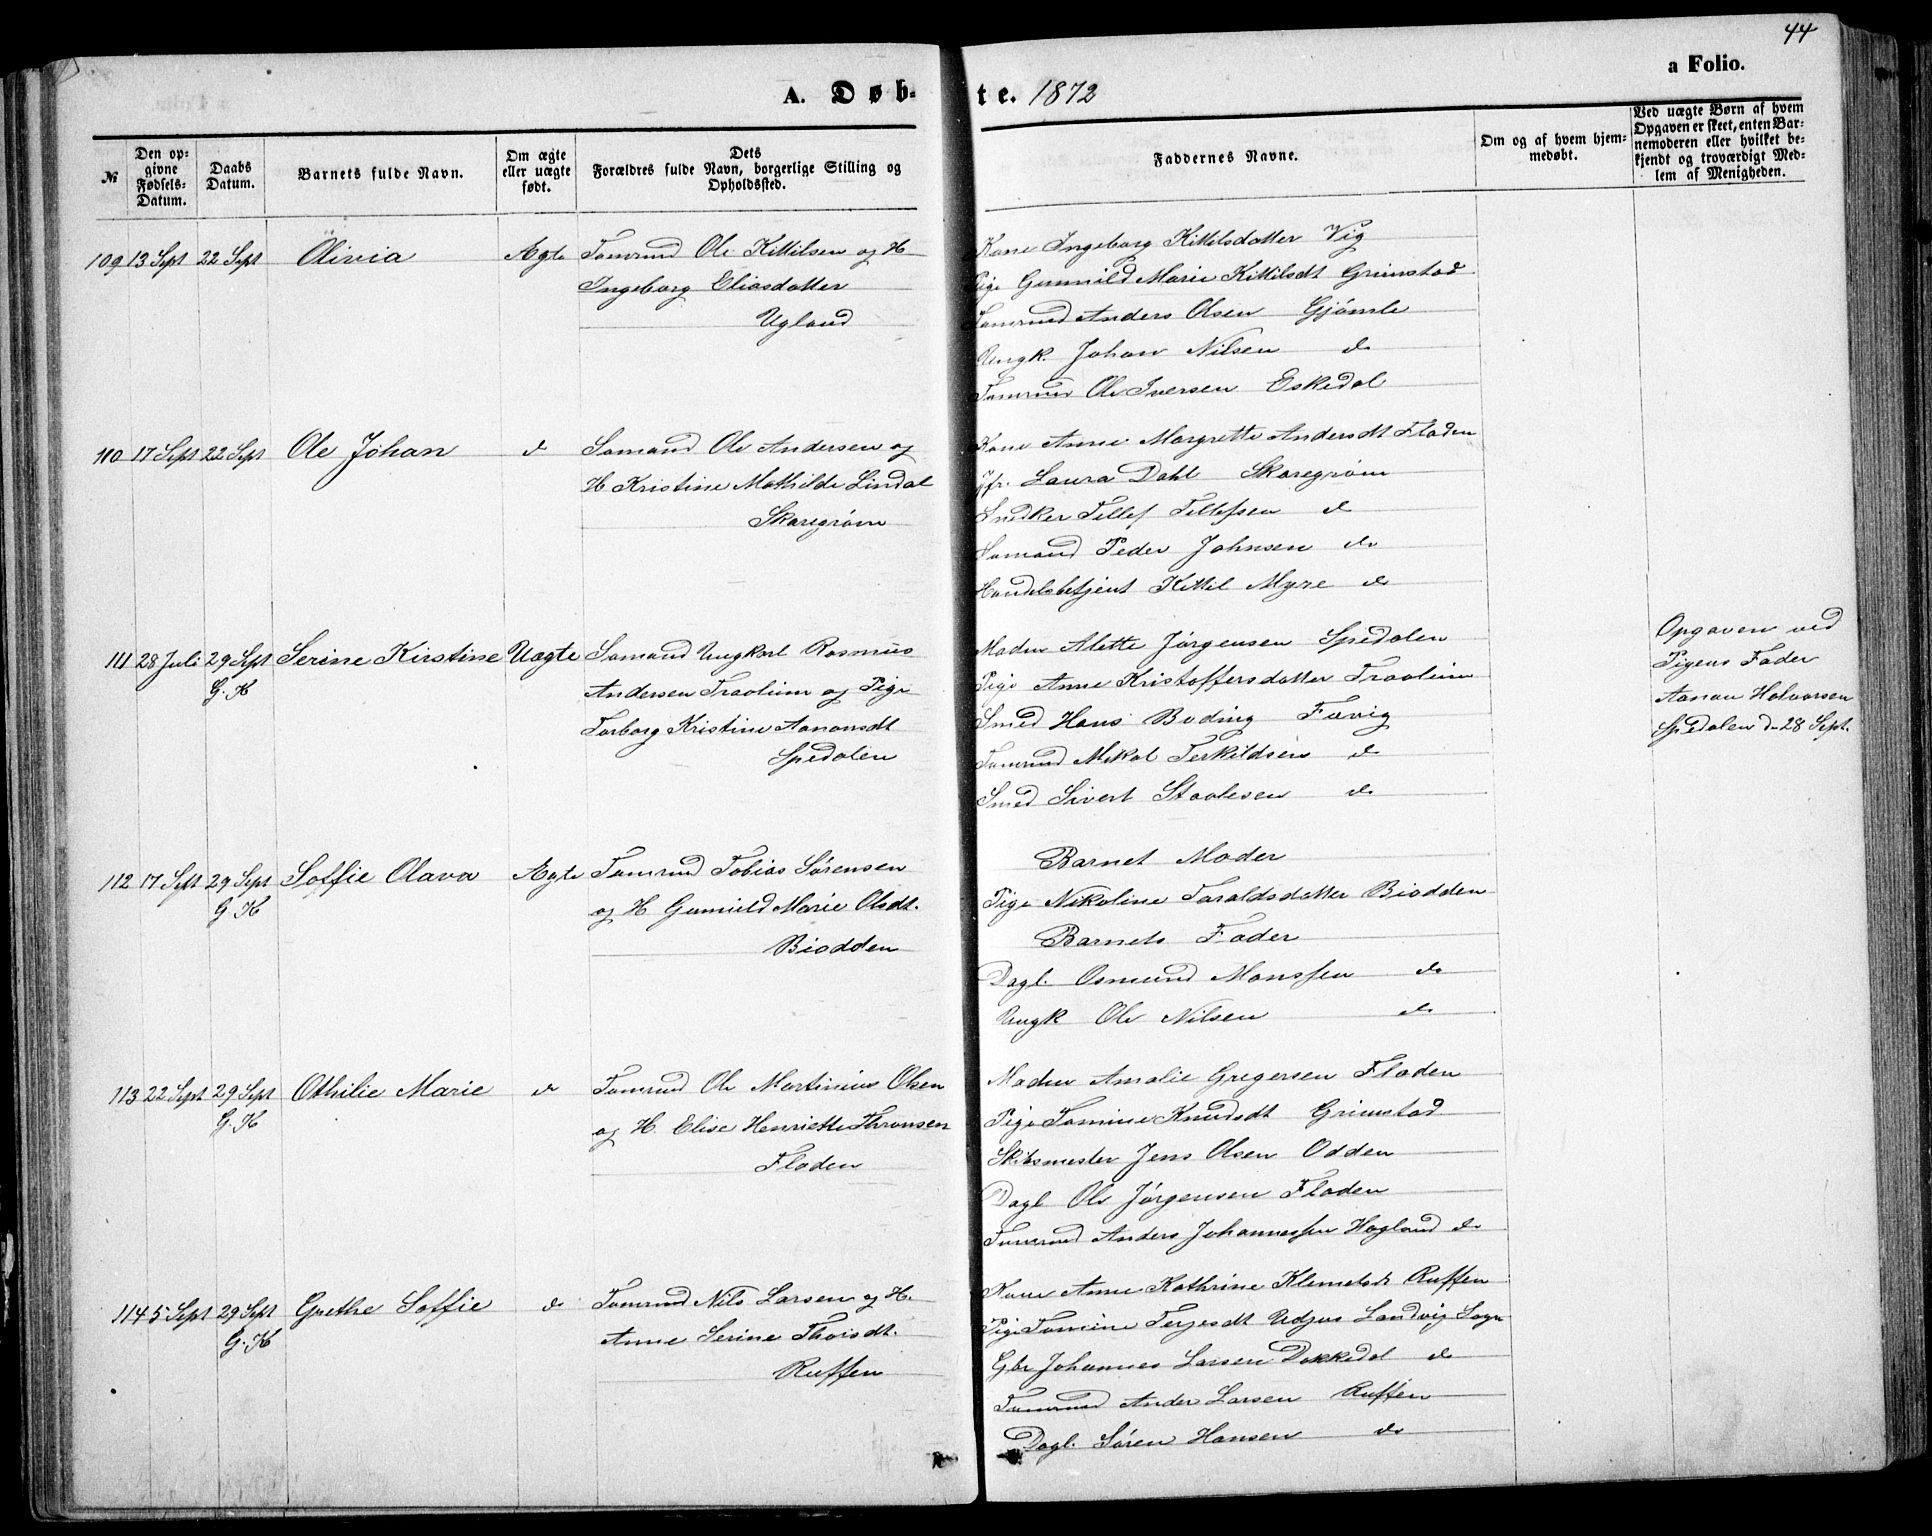 44
A. Døb-
te. 1872
a Folio.
№
Den op-
givne
Fødsels-
Datum.
Daabs
Datum.
Barnets fulde Navn.
Om ægte
eller uægte
født.
Dets
Forældres fulde Navn, borgerlige Stilling og
Opholdssted.
Faddernes Navne.
Om og af hvem hjem-
medøbt.
Ved uægte Børn af hvem
Opgaven er skeet, enten Bar-
nemoderen eller hvilket be-
kjendt og troværdigt Med-
lem af Menigheden.
109 13 Sept 22 Sept Olivia Ægte Tømmd Ole Kittilsen og H
Ingeborg Eliasdatter
Ugland
Kone Ingeborg Kittelsdatter Vig
Pige Gunnild Marie Kittilsdt Grimstad
Tømmd Anders Olsen Gjømle
Ungk. Johan Nilsen do
Tømmd Ole Iversen Eskedal
110 17 Sept 22 Sept Ole Johan do Sømand Ole Andersen og
H Kristine Mathilde Lindal
Skaregrøm
Kone Anne Margrette Andersdt Fladen
Jfr. Laura Dahl Skaregrøm
Snedker Tellef Tellefsen do
Sømand Peder Johnsen do
Handelsbetjent Kittil Myre do
111 28 Juli 29 Sept Serine Kirstine Uægte Sømand Ungkarl Rasmus
G. K
Andersen Traolium og Pige
Torborg Kristine Aanonsdt
Spedalen
Madm Alette Jørgensen Spedalen
Pige Anne Kristoffersdatter Traolium
Smed Hans Boding Favig
Tømmd Mikal Terkildsen do
Smed Sivert Staalesen do
Opgaven ved
Pigens Fader
Aanon Halvorsen
Spedalen d. 28 Sept.
112 17 Sept 29 Sept Soffie Olava Ægte Tømmd Tobias Sørensen
G. K
og H Gunnild Marie Olsdt.
Biodden
Barnet Moder
Pige Nikoline Taraldsdatter Biodden
Barnets Fader
Dagl. Osmund Monssen do
Ungk Ole Nilsen do
113 22 Sept 29 Sept Othilie Marie do Tømmd Ole Martinius Olsen
G. K
og H. Elise Henriette Thronsen
Fladen
Madm Amalie Gregersen Fladen
Pige Tomine Knudsdt Grimstad
Skibsmester Jens Olsen Odden
Dagl Ole Jørgensen Fladen
Tømmd Anders Johannessen Hagland do
114 5 Sept 29 Sept Grethe Soffie do Tømmd Nils Larsen og H.
G. K
Anne Serine Thorsdt.
Ruffen
Kone Anne Kathrine Klemetsdt Ruffen
Pige Tomine Terjesdt Udjus Landvig Sogn
Gbr Johannes Larsen Dokkedal do
Tømmd Ander Larsen Ruffen
Dagl. Søren Hansen do